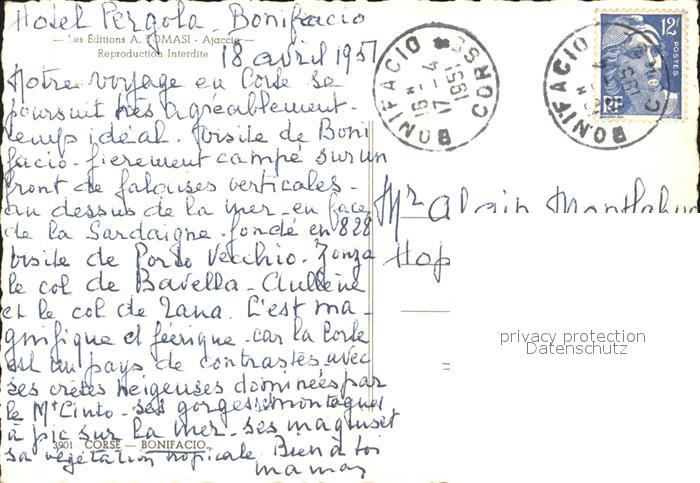 Hotel Pergola. Bonifacio
— Les Éditions A. TOMASI - Ajaccio —
Reproduction Interdite
18 avril 1951
Notre voyage en Corse se
poursuit très agréablement -
temps idéal. Visite de Boni
facio - fièrement campé sur un
front de falaises verticales -
au dessus de la mer - en face
de la Sardaigne - fondé en 828
Visite de Porto Vecchio. Zonza
le col de Bavella - Aullène
et le col de Zana. C'est ma-
gnifique et féerique - car la Corse
est un pays de contrastes avec
ses crêtes neigeuses dominées par
le Mt Cinto - ses gorges, montagnes
à pic sur la mer - ses maquis et
3901 CORSE — BONIFACIO.
sa végétation tropicale. Bien à toi
maman
BONIFACIO CORSE
16 H
17 - 4
1951
BONIFACIO
12F
POSTES
RF
Mr Alain
Hop
privacy protection
Datenschutz